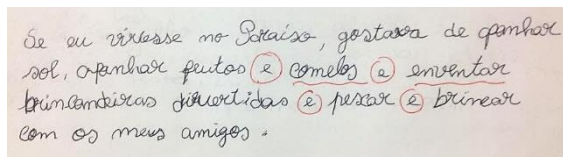 Se eu vivesse no Paraíso, gostava de apanhar
sol, apanhar frutos e comelos e enventar
brincandeiras divertidas e pescar e brincar
com os meus amigos.